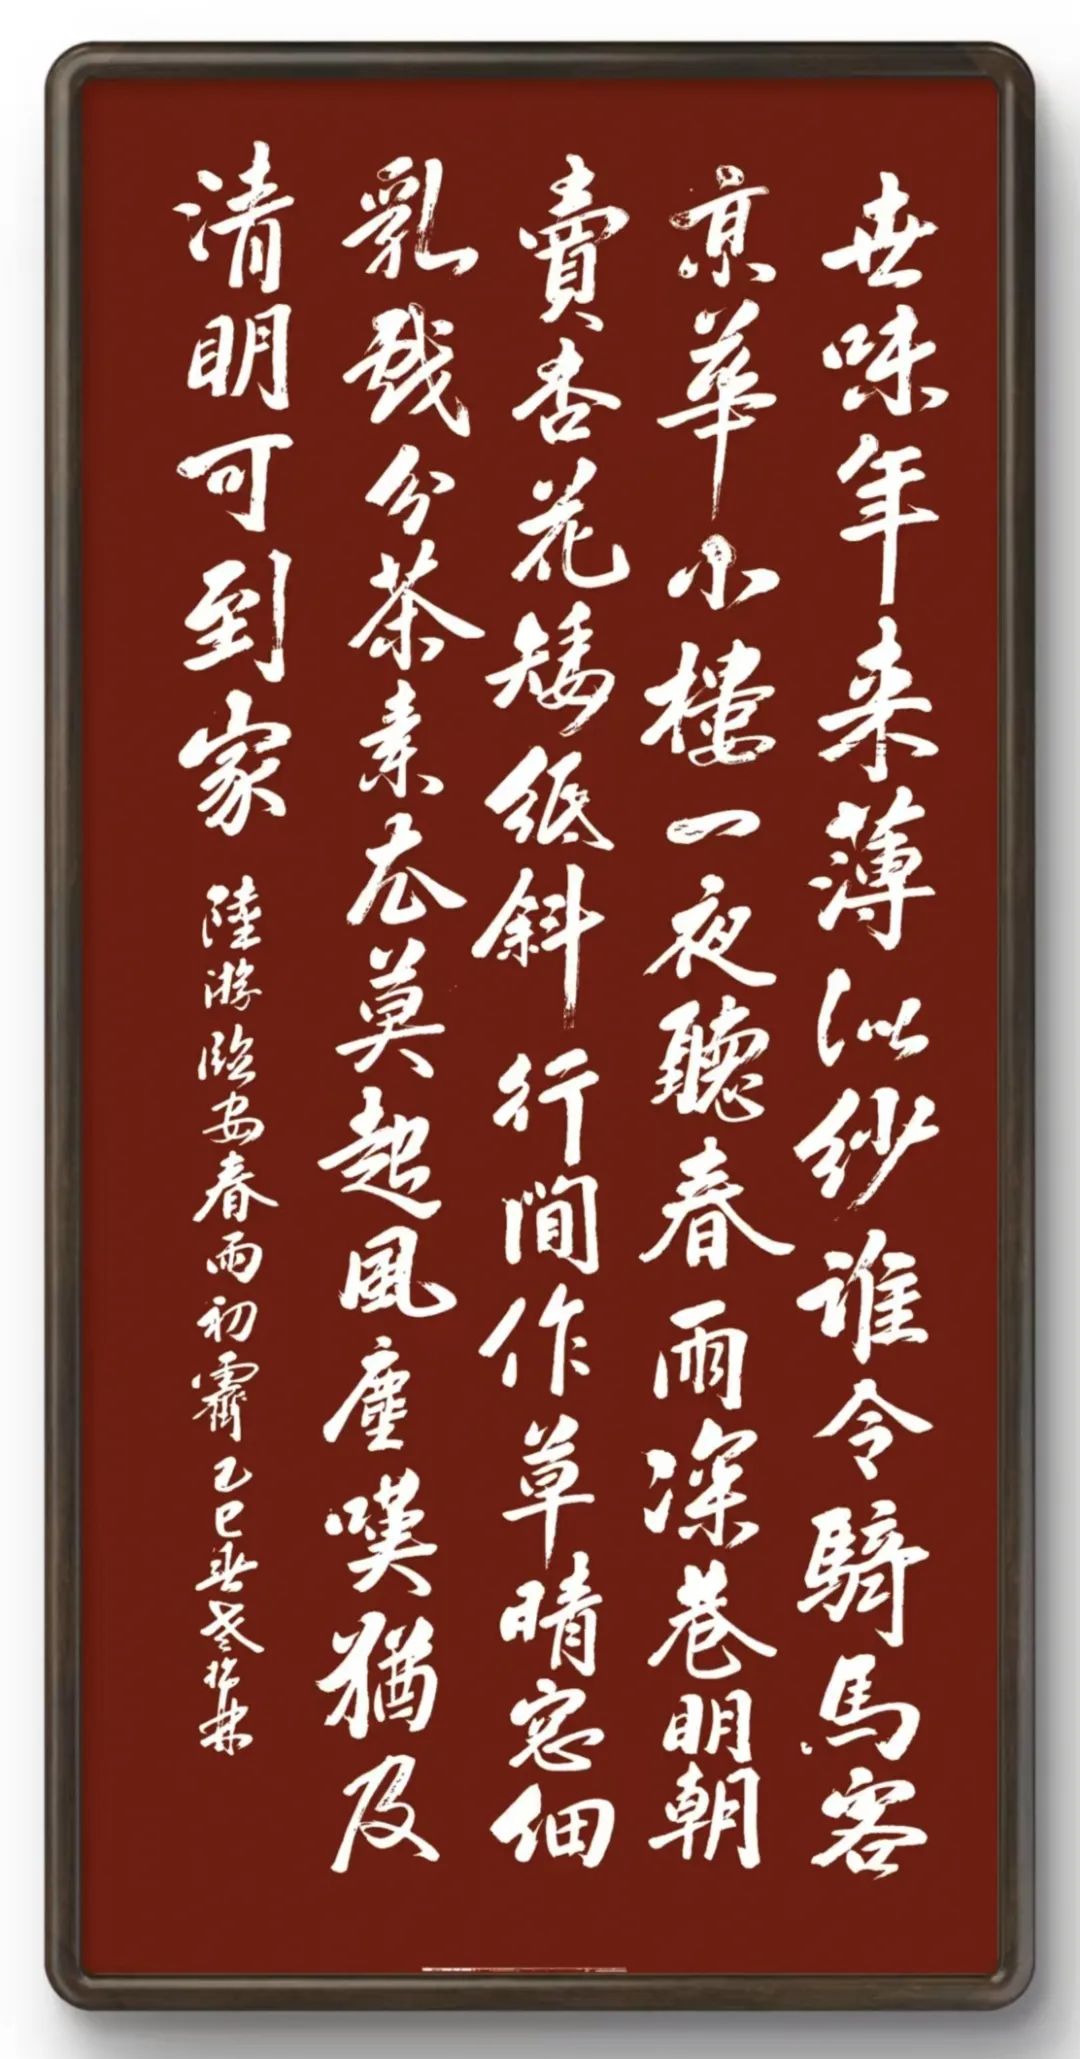 世味年来薄似紗誰令騎馬客
京華小樓一夜聽春雨深巷明朝
賣杏花矮紙斜行間作草晴窓細
乳戲分茶素衣莫起風塵嘆猶及
清明可到家 陸游臨安春雨初霽乙巳